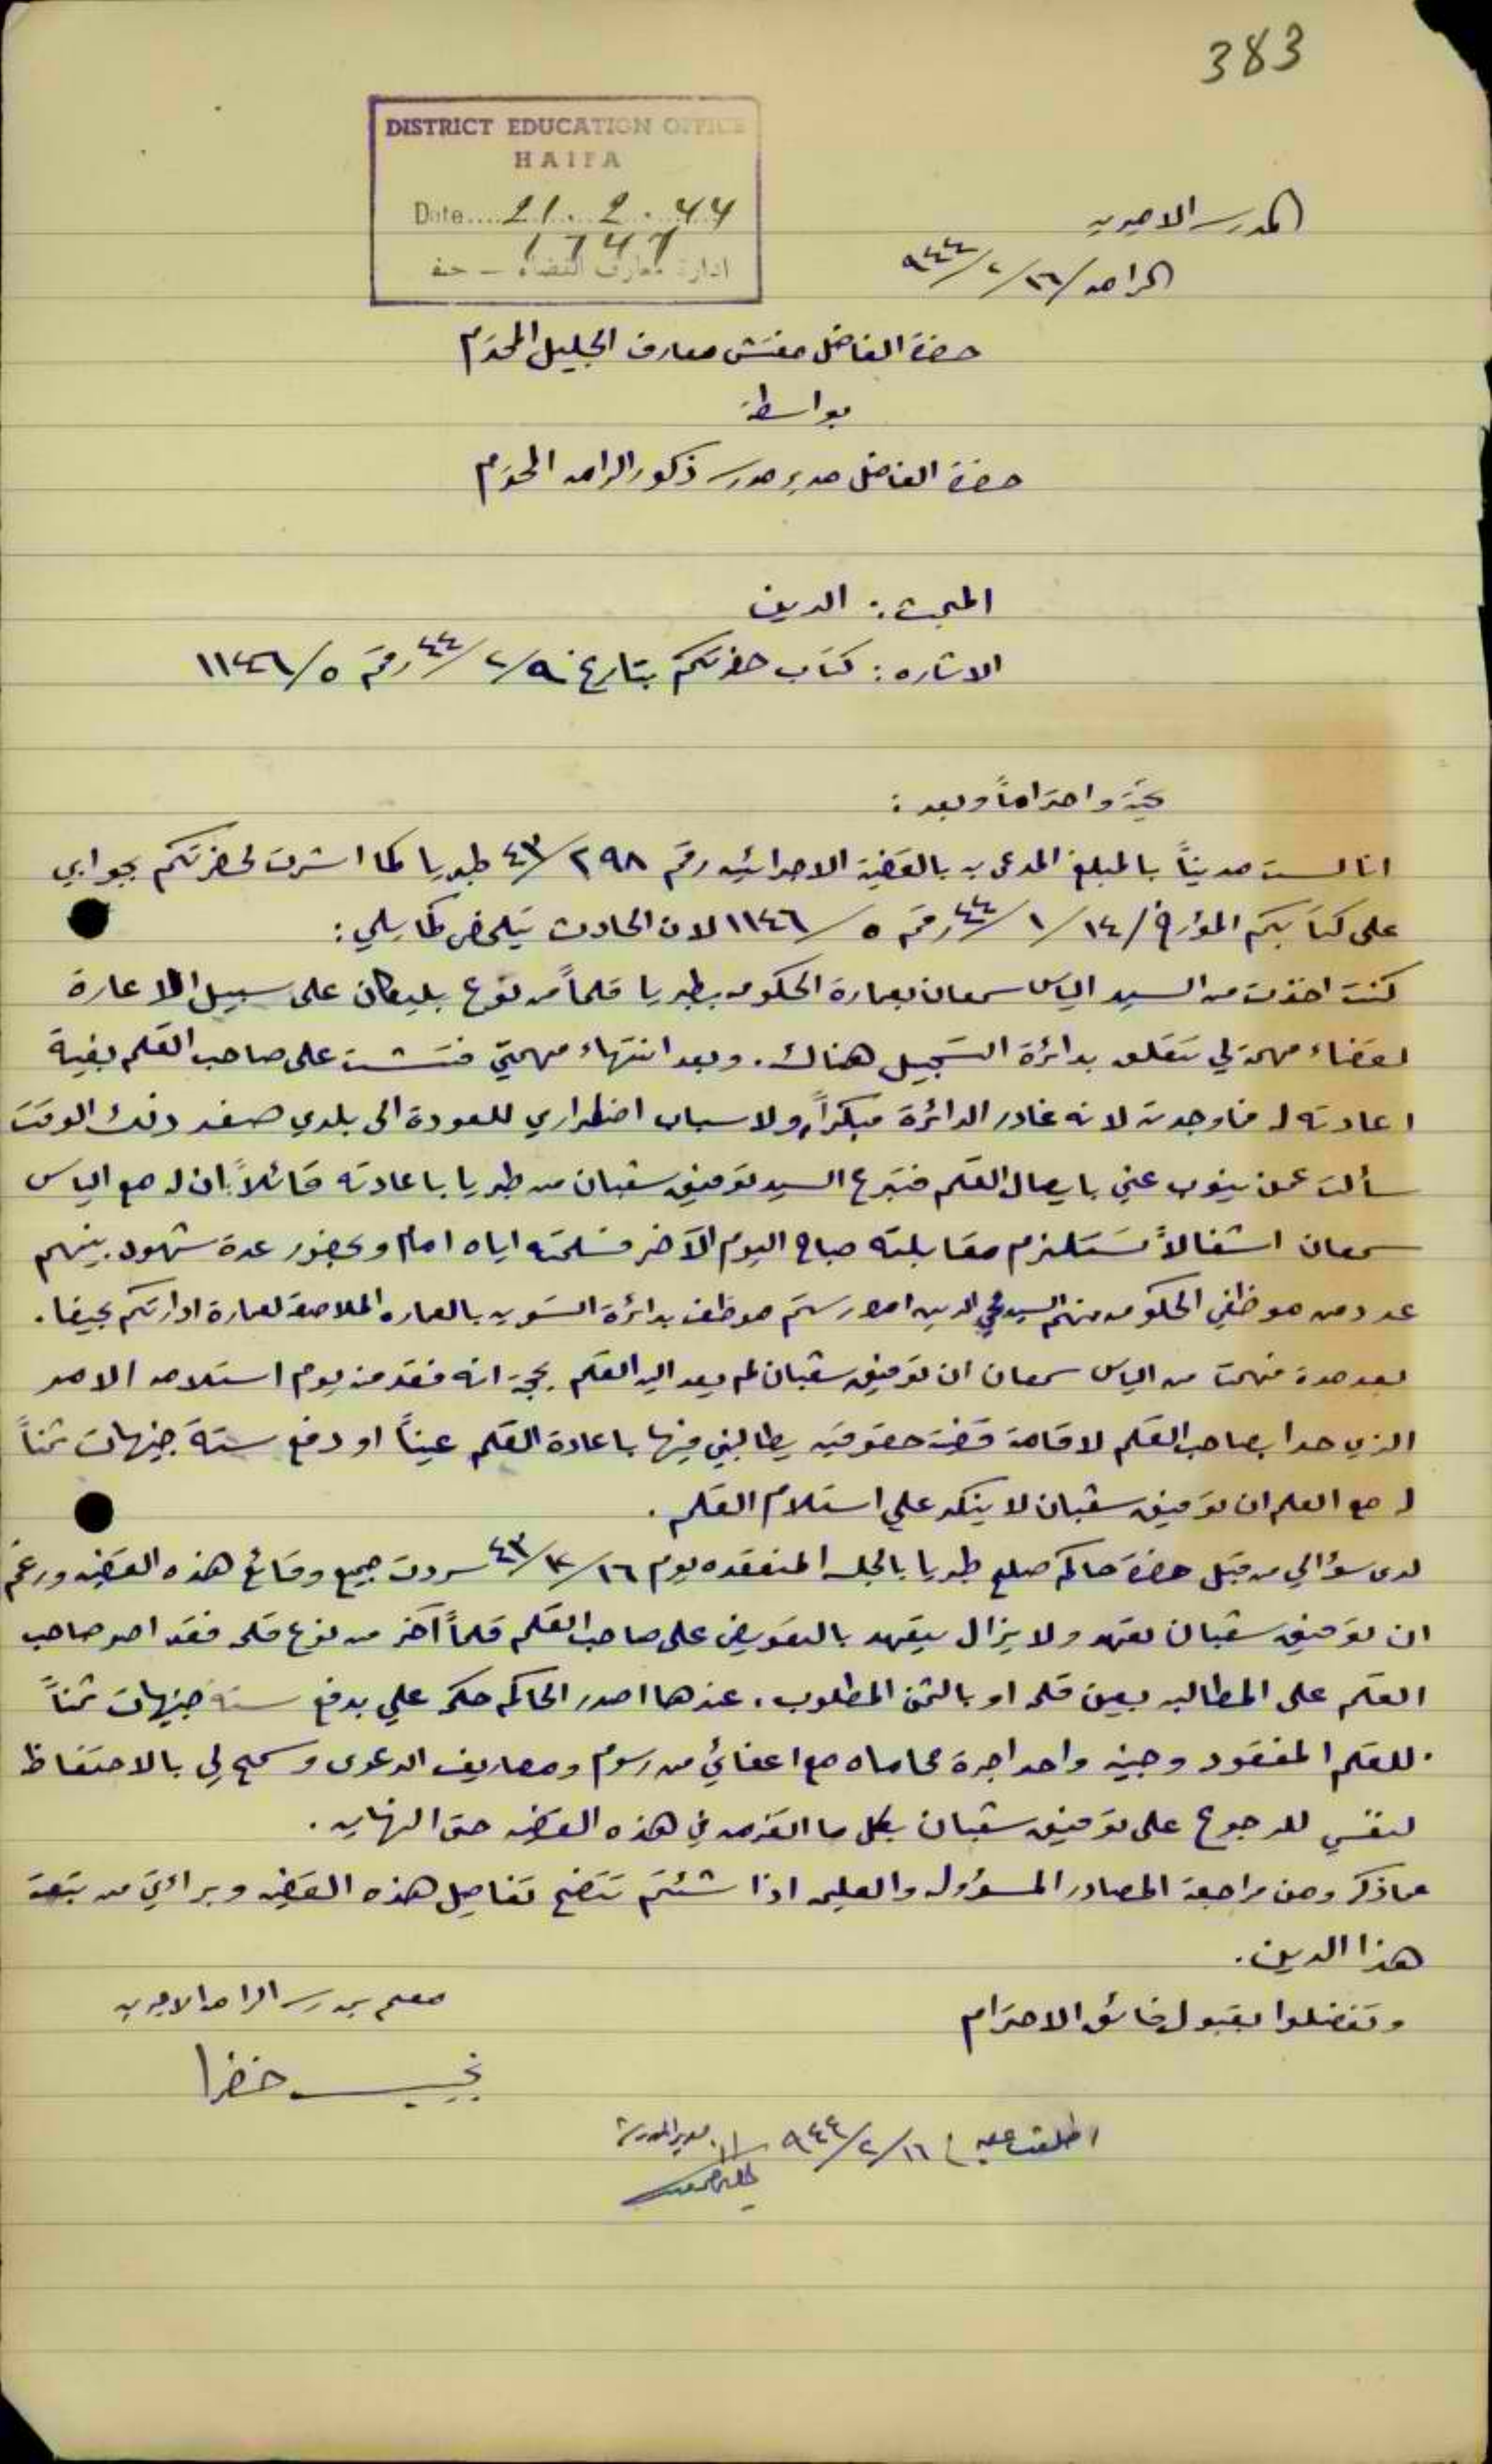 383
DISTRICT EDUCATION OFFICE
HAIFA
Date.... 21. 2. 44
1747
ادارة معارف القضاء - حيفا
المدرسة الاميرية
الرامه ١٦/ ٢/ ٩٤٤
حضرة الفاضل مفتش معارف الجليل المحترم
بواسطة
حضرة الفاضل مدير مدرسة ذكور الرامه المحترم
المبحث: الدين
الاشاره: كتاب حضرتكم بتاريخ ٩/ ٢/ ٤٤ رقم ٥/ ١١٤٦
تحية واحتراماً وبعد:
انا لست مديناً بالمبلغ المدعى به بالقضية الاجرائيه رقم ٢٩٨/ ٤٣ طبريا كما اشرت لحضرتكم بجوابي
على كتابكم المؤرخ/ ١٤/ ١/ ٤٤ رقم ٥/ ١١٤٦ لان الحادث يتلخص كما يلي:
كنت اخذت من السيد الياس سمعان بعمارة الحكومه بطبريا قلماً من نوع بليكان على سبيل الاعارة
لقضاء مهمة لي تتعلق بدائرة التسجيل هناك. وبعد انتهاء مهمتي فتشت على صاحب القلم بغية
اعادته له فما وجدته لانه غادر الدائرة مبكراً، ولاسباب اضطراري للعودة الى بلدي صفد ذلك الوقت
سألت عمن ينوب عني بايصال القلم فتبرع السيد توفيق شعبان من طبريا باعادته قائلاً: ان له مع الياس
سمعان اشغالاً تستلزم مقابلته صباح اليوم الآخر فسلمته اياه امام وبحضور عدة شهود بينهم
عدد من موظفي الحكومه منهم السيد محي الدين رستم موظف بدائرة التسويه بالعماره الملاصقة لعمارة ادارتكم بحيفا.
بعد مدة فهمت من الياس سمعان ان توفيق شعبان لم يعد اليه القلم بحجة انه فقد منه يوم استلامه الامر
الذي حدا بصاحب القلم لاقامة قضية حقوقيه يطالبني فيها باعادة القلم عيناً او دفع ستة جنيهات ثمناً
له مع العلم ان توفيق شعبان لا ينكر علي استلام القلم.
لدى سؤالي من قبل حضرة حاكم صلح طبريا بالجلسه المنعقده يوم ١٦/ ٤٣ سردت جميع وقائع هذه القضيه ورغم
ان توفيق شعبان تعهد ولا يزال يتعهد بالتعويض على صاحب القلم قلماً آخر من نوع قلمه فقد اصر صاحب
القلم على المطالبه بعين قلمه او بالثمن المطلوب. عندها اصدر الحاكم حكمه علي بدفع ستة جنيهات ثمناً
للقلم المفقود وجنيه واحد اجرة محاماه مع اعفائي من رسوم ومصاريف الدعوى وسمح لي بالاحتفاظ
لنفسي للرجوع على توفيق شعبان بكل ما التزمه في هذه القضيه حتى النهايه.
مما ذكر ومن مراجعة المصادر المسؤوله والعليمه اذا شئتم تتضح تفاصيل هذه القضيه وبراءتي من تبعة
هذا الدين.
وتفضلوا بقبول فائق الاحترام
معلم بمدرسة الرامه الاميريه
نجيب خضرا
اطلعت عليه ١٦/ ٢/ ٩٤٤ مدير المدرسة